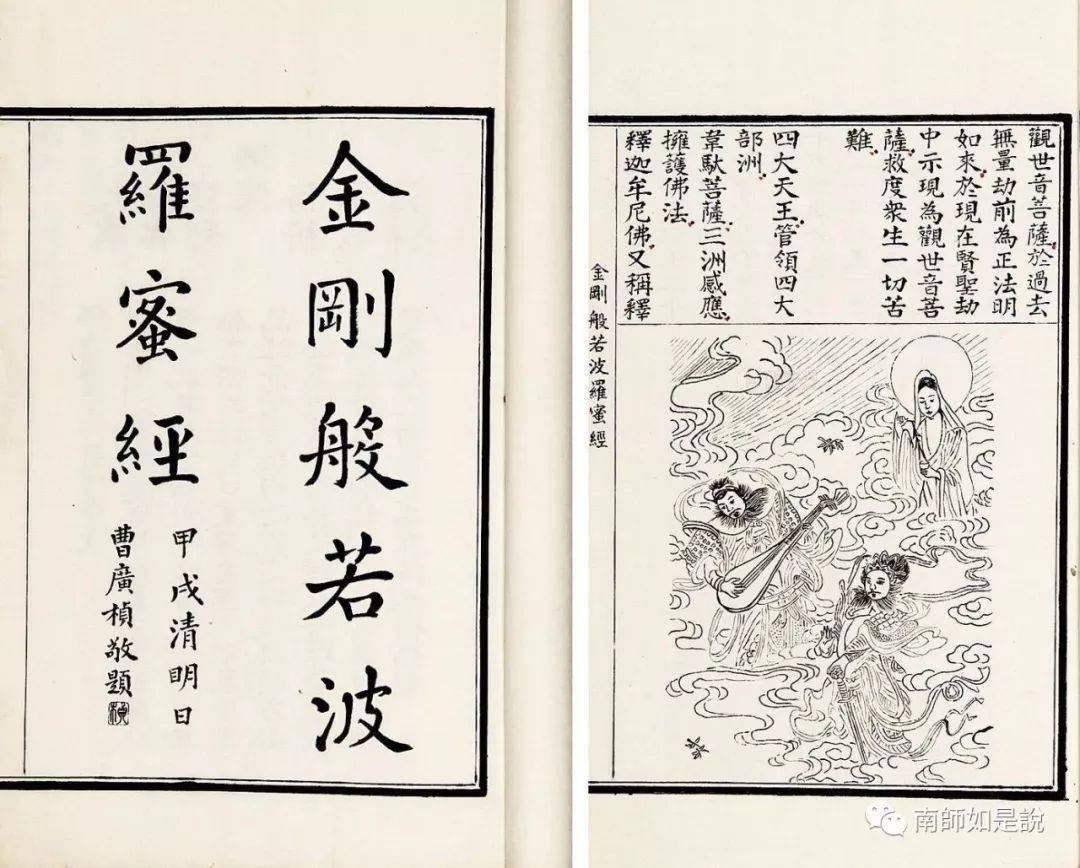 金剛般若波
羅蜜經
甲戌清明日
曹廣楨敬題
觀世音菩薩於過去
無量劫前為正法明
如來於現在賢聖劫
中示現為觀世音菩
薩救度衆生一切苦
難
四大天王管領四大
部洲
韋馱菩薩三洲感應
擁護佛法
釋迦牟尼佛又稱釋
金剛般若波羅蜜經
南師如是說